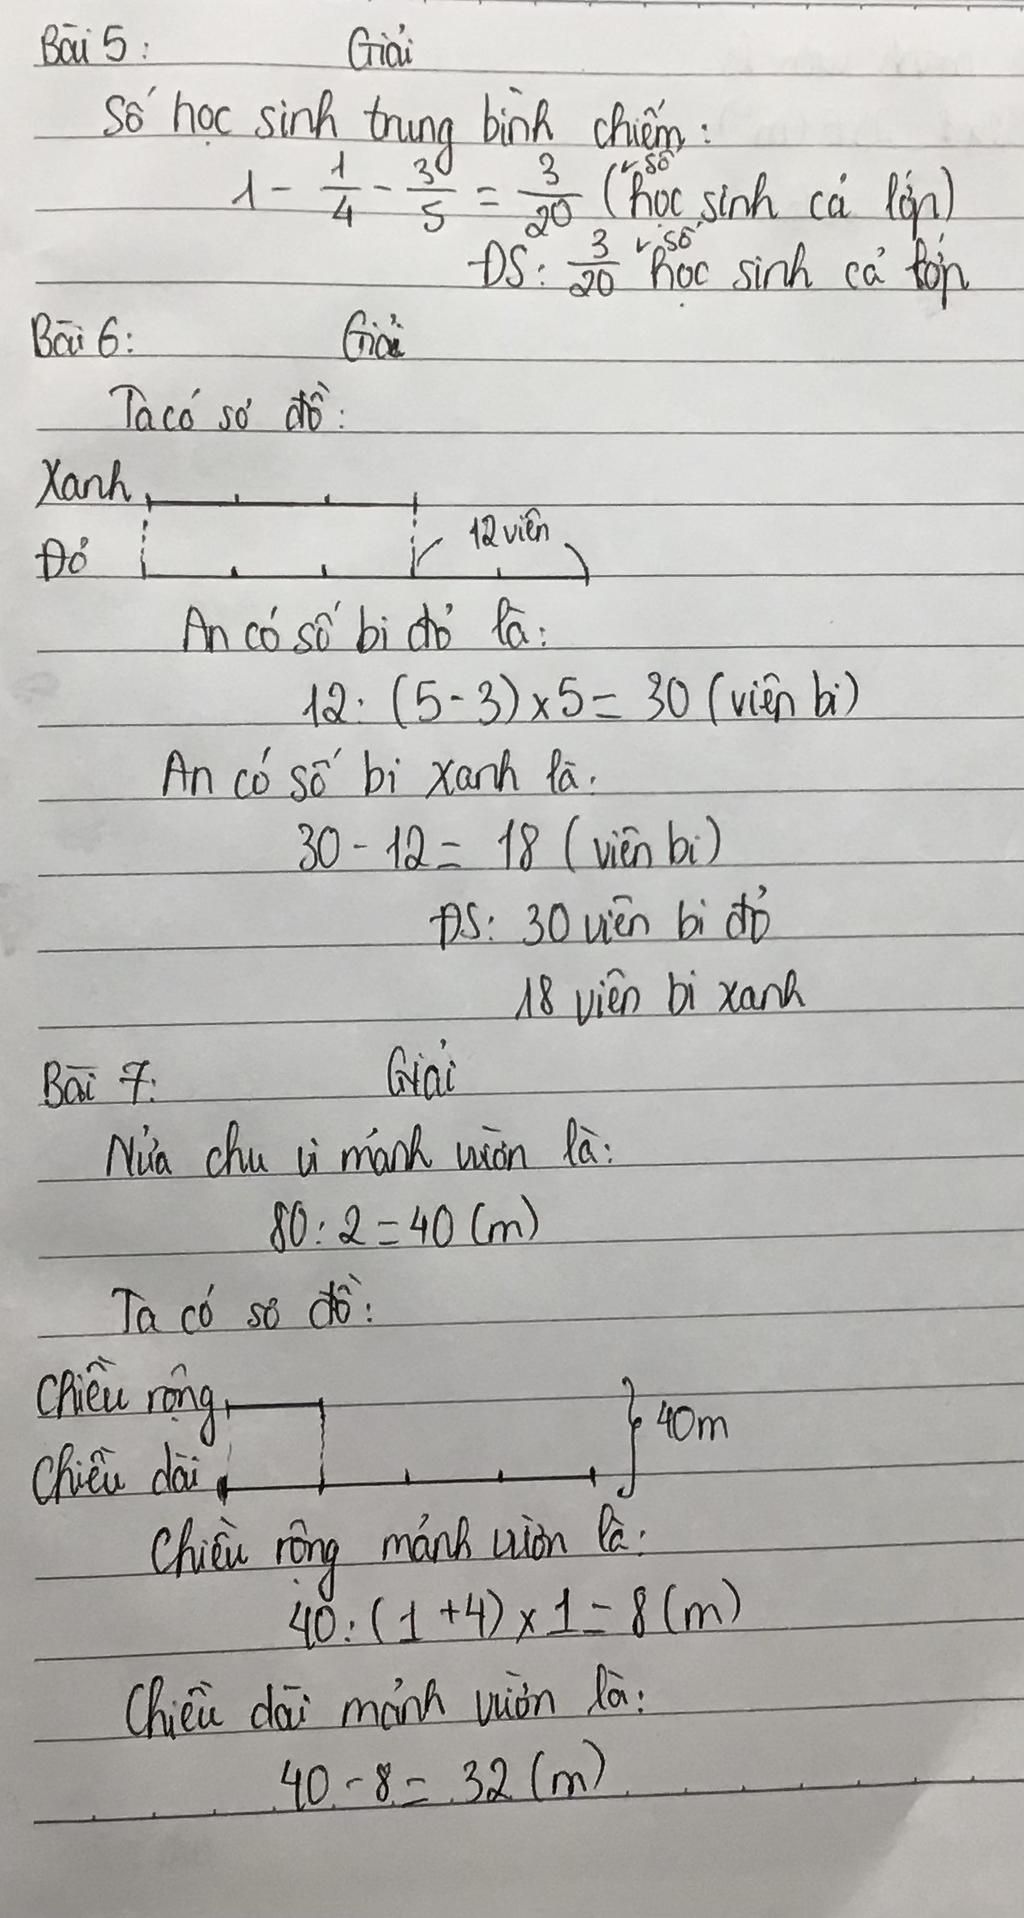 Bài 5: Giải
Số học sinh trung bình chiếm:
1 - 1/4 - 3/5 = 3/20 (số học sinh cả lớp)
ĐS: 3/20 số học sinh cả lớp
Bài 6: Giải
Ta có sơ đồ:
Xanh
12 viên
Đỏ
An có số bi đỏ là:
12: (5-3) x 5 = 30 (viên bi)
An có số bi xanh là:
30 - 12 = 18 (viên bi)
ĐS: 30 viên bi đỏ
18 viên bi xanh
Bài 7: Giải
Nửa chu vi mảnh vườn là:
80: 2 = 40 (m)
Ta có sơ đồ:
Chiều rộng
40m
Chiều dài
Chiều rộng mảnh vườn là:
40: (1 + 4) x 1 = 8 (m)
Chiều dài mảnh vườn là:
40 - 8 = 32 (m)